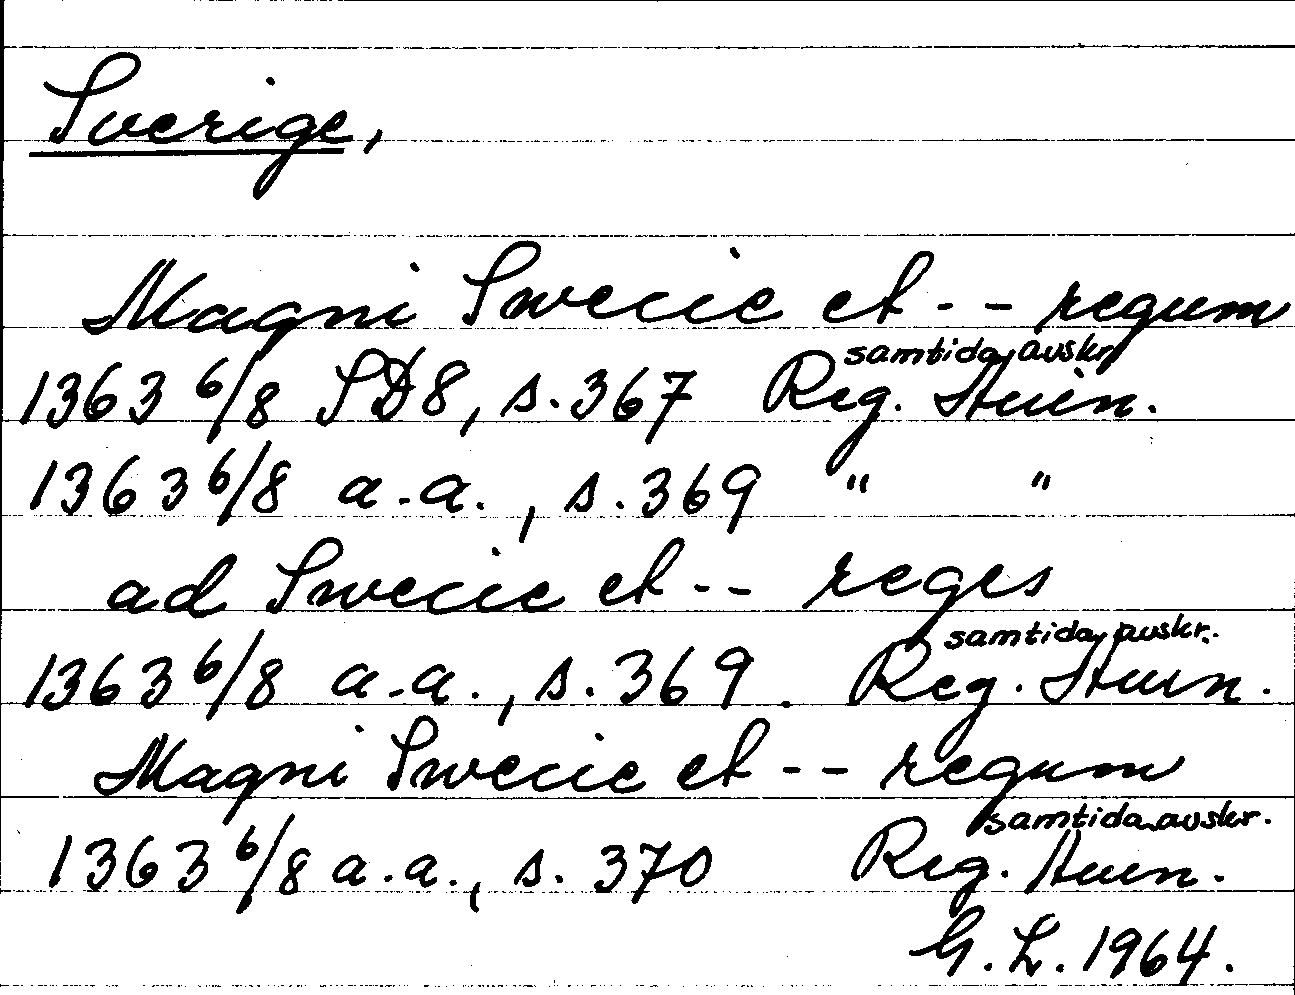 Sverige,
Magni Swecie et - - regum
samtida avskr.
1363 6/8 SD8, s. 367 Reg. Auin.
1363 6/8 a.a., s. 369 " "
ad Swecie et - - reges
samtida avskr.
1363 6/8 a.a., s. 369. Reg. Auin.
Magni Swecie et - - regum
samtida avskr.
1363 6/8 a.a., s. 370 Reg. Auen.
G. L. 1964.